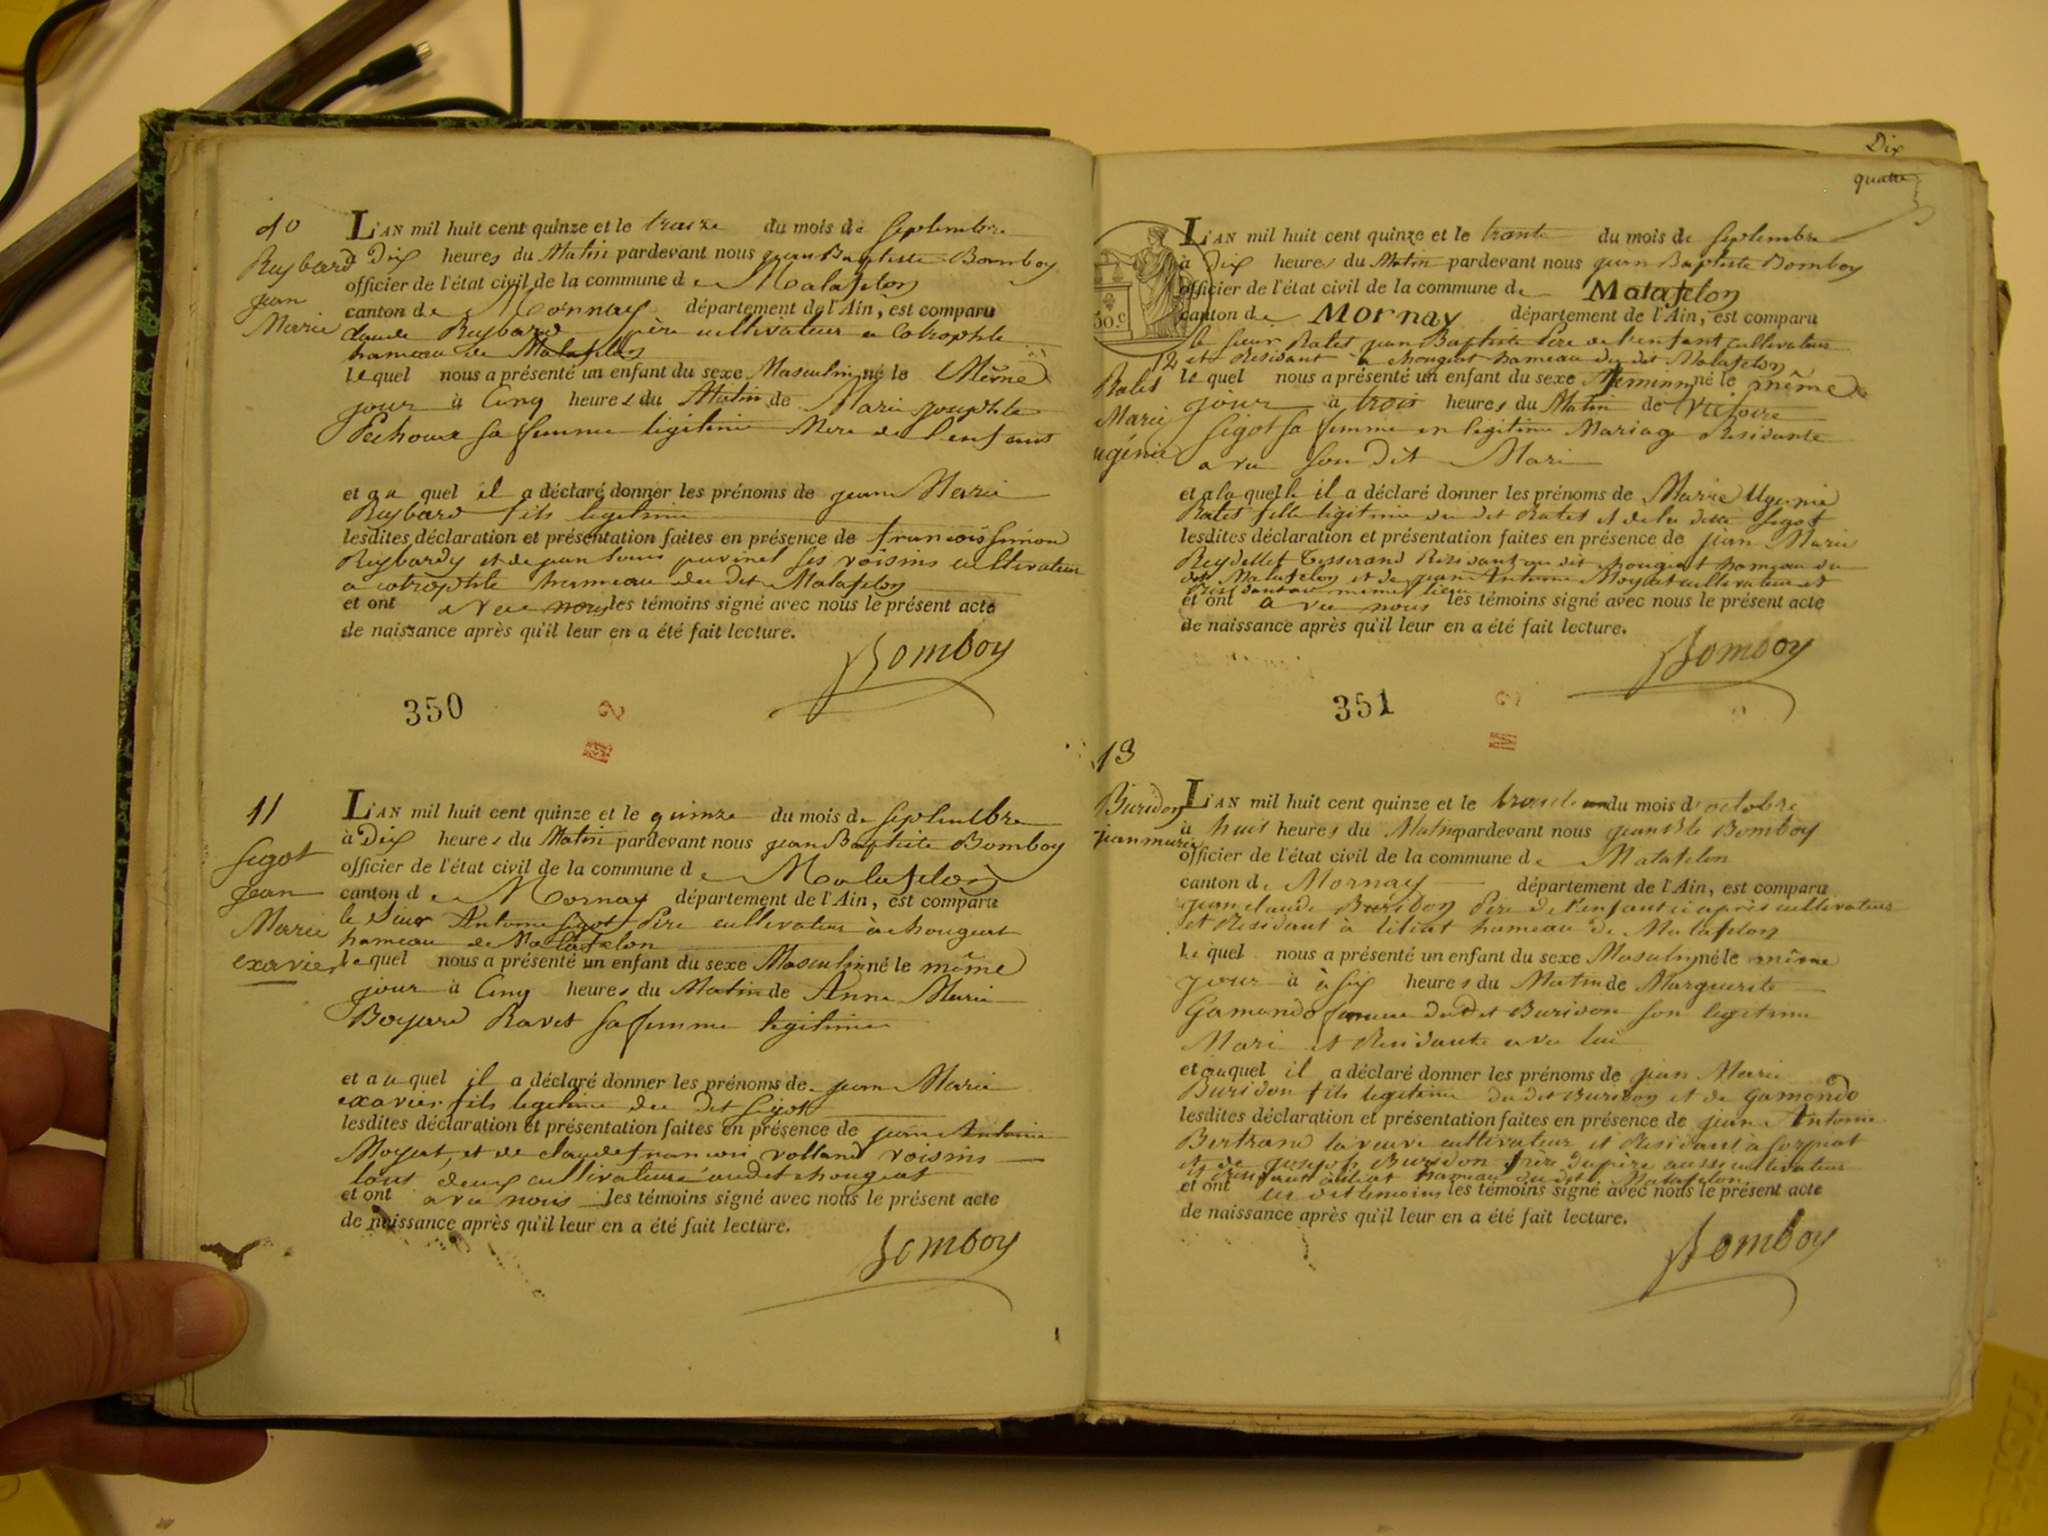 10
Reybard
jean
Marie
L'AN mil huit cent quinze et le traize du mois de septembre
Dix heures du Matin pardevant nous jean Baptiste Bomboy
officier de l'état civil de la commune de Matafelon
canton de Mornay département de l'Ain, est comparu
claude Reybard père cultivateur a Cotrophle
hameau de Matafelon
le quel nous a présenté un enfant du sexe Masculin né le Même
jour à Cinq heures du Matin de Marie josephte
sa femme legitime Mere de l'enfant
et au quel il a déclaré donner les prénoms de jean Marie
Reybard fils legitime
lesdites déclaration et présentation faites en présence de francois Simon
Reybardy et de jean Louis ses voisins cultivateur
a cotrophle hameau du dit Matafelon
et ont avec nous les témoins signé avec nous le présent acte
de naissance après qu'il leur en a été fait lecture.
Bomboy
350
11
sigot
jean
Marie
exavier
L'AN mil huit cent quinze et le quinze du mois de septembre
à Dix heures du Matin pardevant nous jean Baptiste Bomboy
officier de l'état civil de la commune de Matafelon
canton de Mornay département de l'Ain, est comparu
le Sieur Antoine sigot Père cultivateur à chougeat
hameau de Matafelon
le quel nous a présenté un enfant du sexe Masculin né le même
jour à Cinq heures du Matin de Anne Marie
Boyard Ravet sa femme legitime
et au quel il a déclaré donner les prénoms de jean Marie
exavier fils legitime du dit sigot
lesdites déclaration et présentation faites en présence de jean Antoine
Moyat et de claude francois volland voisins
tous deux cultivateurs audit chougeat
et ont avec nous les témoins signé avec nous le présent acte
de naissance après qu'il leur en a été fait lecture.
Bomboy
Dix
quatre
12
Ratet
Marie
ugénie
50.c
L'AN mil huit cent quinze et le trante du mois de septembre
à Dix heures du Matin pardevant nous jean Baptiste Bomboy
officier de l'état civil de la commune de Matafelon
canton de Mornay département de l'Ain, est comparu
le sieur Ratet jean Baptiste Père de l'enfant cultivateur
et Residant a chougeat hameau du dit Matafelon
le quel nous a présenté un enfant du sexe Feminin né le même
jour à trois heures du Matin de victoire
sigot sa femme en legitime Mariage Residante
avec son dit Mari
et a la quelle il a déclaré donner les prénoms de Marie Ugenie
Ratet fille legitime du dit Ratet et de la dite sigot
lesdites déclaration et présentation faites en présence de jean Marie
Reydellet Tisserand Residant au dit chougeat hameau du
dit Matafelon et de jean Antoine Moyat cultivateur et
Residant au meme lieu
et ont avec nous les témoins signé avec nous le présent acte
de naissance après qu'il leur en a été fait lecture.
Bomboy
351
13
Buridon
jean marie
L'AN mil huit cent quinze et le trante un du mois d'octobre
à huit heures du Matin pardevant nous jean Bte Bomboy
officier de l'état civil de la commune de Matafelon
canton de Mornay département de l'Ain, est comparu
jean claude Buridon Père de l'enfant ci après cultivateur
et Residant à hameau de Matafelon
le quel nous a présenté un enfant du sexe Masulin né le même
jour à à six heures du Matin de Marguerite
Gamondo femme dudit Buridon son legitime
Mari et Residante avec lui
et auquel il a déclaré donner les prénoms de jean Marie
Buridon fils legitime du dit Buridon et de Gamondo
lesdites déclaration et présentation faites en présence de jean Antoine
Bertrand cultivateur et Residant à
et de joseph Buridon frère du père aussi cultivateur
et Residant hameau du dit Matafelon
et ont les dit temoins les témoins signé avec nous le présent acte
de naissance après qu'il leur en a été fait lecture.
Bomboy